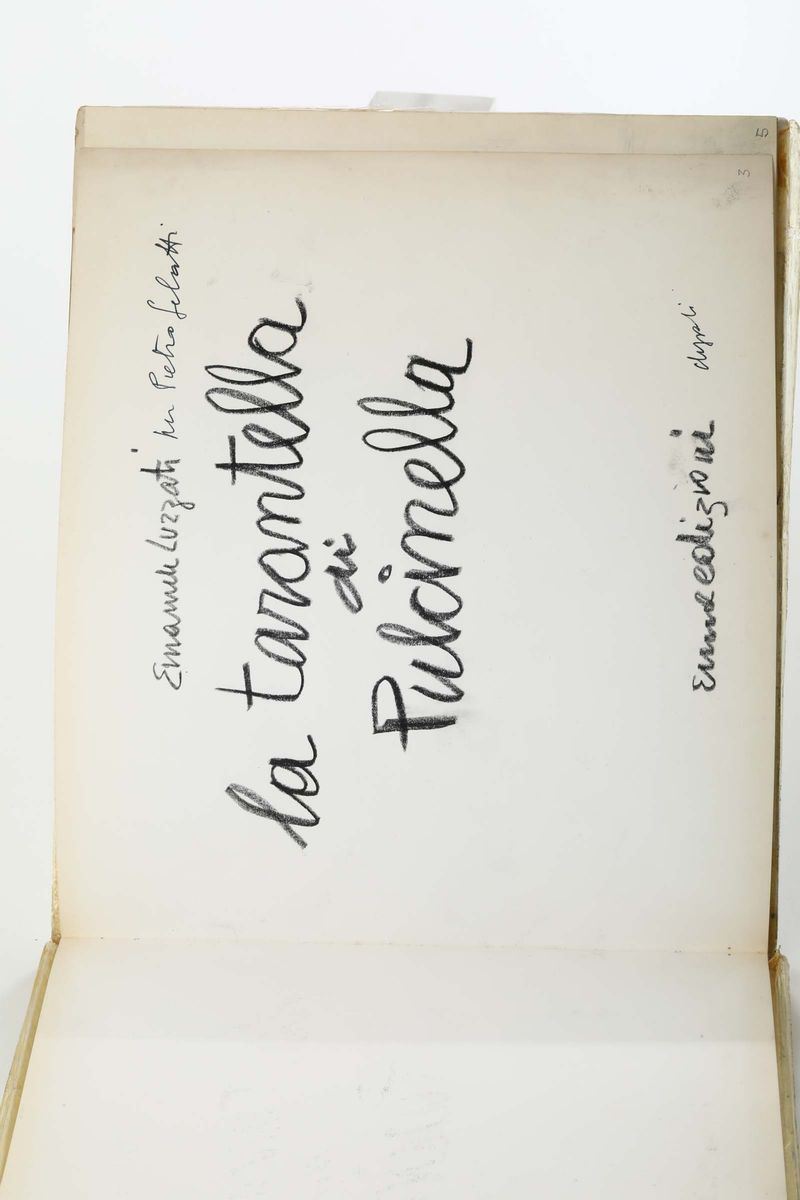 Emanuele Luzzati per Pietro Gelatti
la tarantella
di
Pulcinella
Emme edizioni
3
5